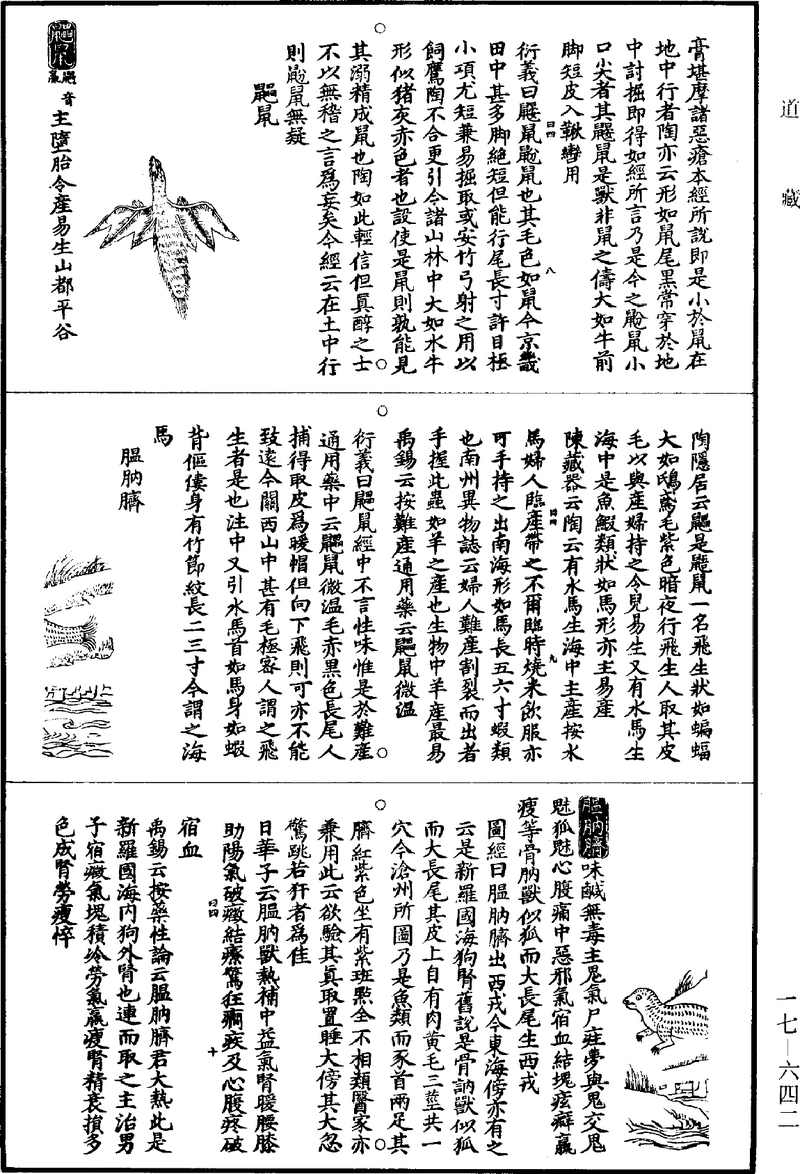 道藏
膏堪摩諸惡瘡本經所說即是小於鼠在
地中行者陶亦云形如鼠尾黑常穿於地
中討掘即得如經所言乃是今之鼢鼠小
口尖者其鼴鼠是獸非鼠之儔大如牛前
脚短皮入鞦轡用
衍義曰鼴鼠鼢鼠也其毛色如鼠今京畿
田中甚多脚絕短但能行尾長寸許目極
小項尤短兼易掘取或安竹弓射之用以
飼鷹陶不合更引今諸山林中大如水牛
形似猪灰赤色者也設使是鼠則孰能見
其溺精成鼠也陶如此輕信但真醇之士
不以無稽之言為妄矣今經云在土中行
則鼢鼠無疑
鼺鼠
鼺鼠
音
羸
主墮胎令產易生山都平谷
陶隱居云鼺是鼯鼠一名飛生狀如蝙蝠
大如鴟鳶毛紫色暗夜行飛生人取其皮
毛以與產婦持之令兒易生又有水馬生
海中是魚鰕類狀如馬形亦主易產
陳藏器云陶云有水馬生海中主產按水
馬婦人臨產帶之不爾臨時燒末飲服亦
可手持之出南海形如馬長五六寸蝦類
也南州異物誌云婦人難產割裂而出者
手握此蟲如羊之產也生物中羊產最易
禹錫云按難產通用藥云鼺鼠微溫
衍義曰鼺鼠經中不言性味惟是於難產
通用藥中云鼺鼠微溫毛赤黑色長尾人
捕得取皮為暖帽但向下飛則可亦不能
致遠今關西山中甚有毛極密人謂之飛
生者是也注中又引水馬首如馬身如蝦
背傴僂身有竹節紋長二三寸今謂之海
馬
膃肭臍
膃肭臍
味鹹無毒主鬼氣尸疰夢與鬼交鬼
魅狐魅心腹痛中惡邪氣宿血結塊痃癖羸
瘦等骨肭獸似狐而大長尾生西戎
圖經曰膃肭臍出西戎今東海傍亦有之
云是新羅國海狗腎舊說是骨訥獸似狐
而大長尾其皮上自有肉黃毛三莖共一
穴今滄州所圖乃是魚類而豕首兩足其
臍紅紫色上有紫斑點全不相類醫家亦
兼用此云欲驗其真取置睡犬傍其犬忽
驚跳若狂者為佳
日華子云膃肭獸熱補中益氣腎暖腰膝
助陽氣破癥結療驚狂癇疾及心腹疼破
宿血
禹錫云按藥性論云膃肭臍君大熱此是
新羅國海內狗外腎也連而取之主治男
子宿癥氣塊積冷勞氣羸瘦腎精衰損多
色成腎勞瘦悴
一七—六四二